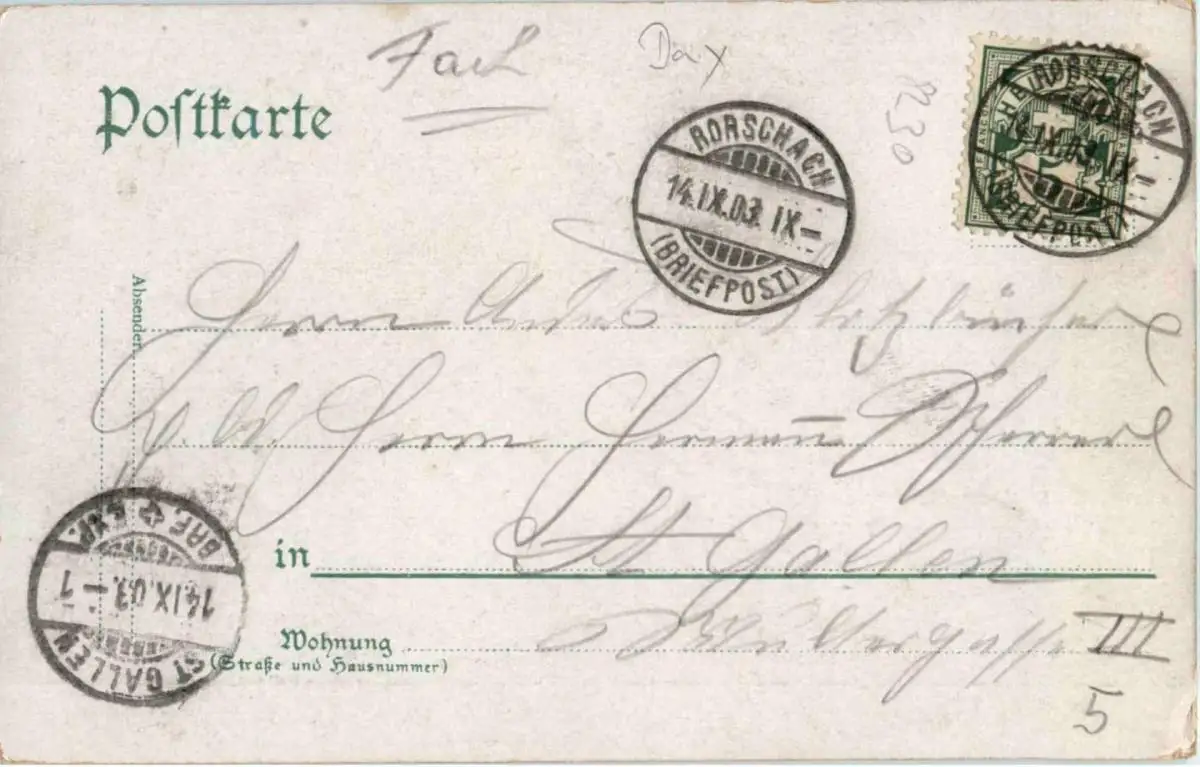 Fach
Dax
Postkarte
230
RORSCHACH
14.IX.03. IX—
(BRIEFPOST)
RORSCHACH
14.IX.03. IX
(BRIEFPOST)
Absender.
Herrn
Herrn Herman Scherrer
in St Gallen
Wohnung
(Straße und Hausnummer)
III
5
ST GALLEN
14.IX.03.—1
BRF. EXP.